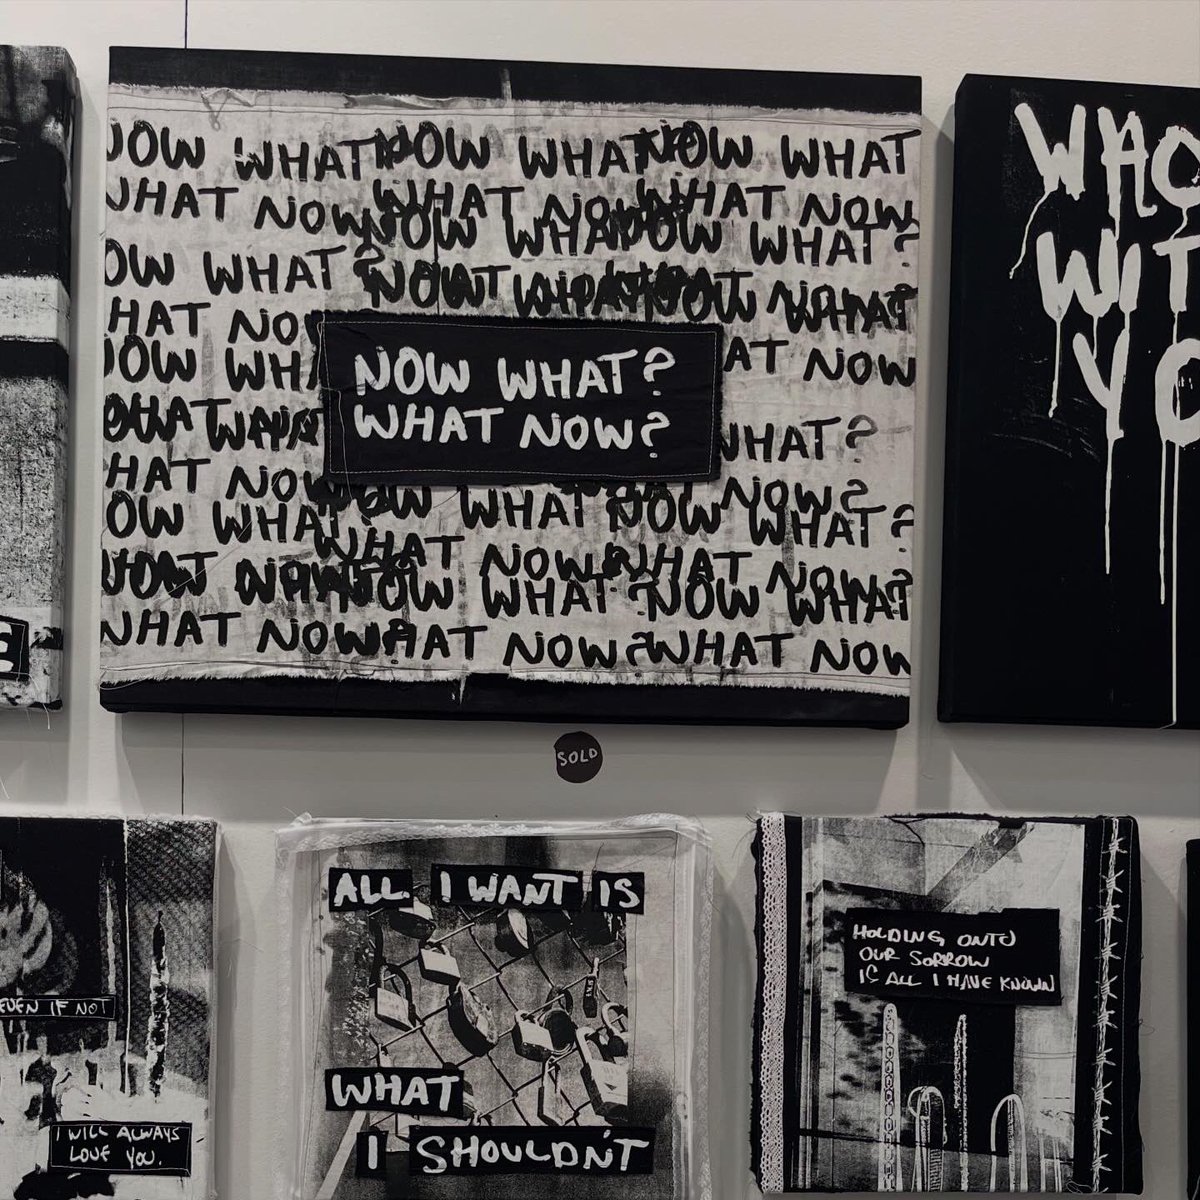 NOW WHAT NOW WHAT NOW WHAT
WHAT NOW WHAT NOW WHAT NOW
NOW WHAT NOW WHAT?
OW WHAT?
NOW
HAT NO
AT NOW
OW WHA
WHAT?
HAT NOW
NOW?
OW WHAT NOW WHAT NOW WHAT?
WHAT NOW WHAT NOW?
NOW WHAT NOW WHAT
WHAT NOW WHAT NOW? WHAT NOW
NOW WHAT?
WHAT NOW?
WHO
WIT
YO
E
SOLD
EVEN IF NOT
I WILL ALWAYS
LOVE YOU.
ALL I WANT IS
WHAT
I SHOULDN'T
HOLDING ONTO
OUR SORROW
IS ALL I HAVE KNOWN